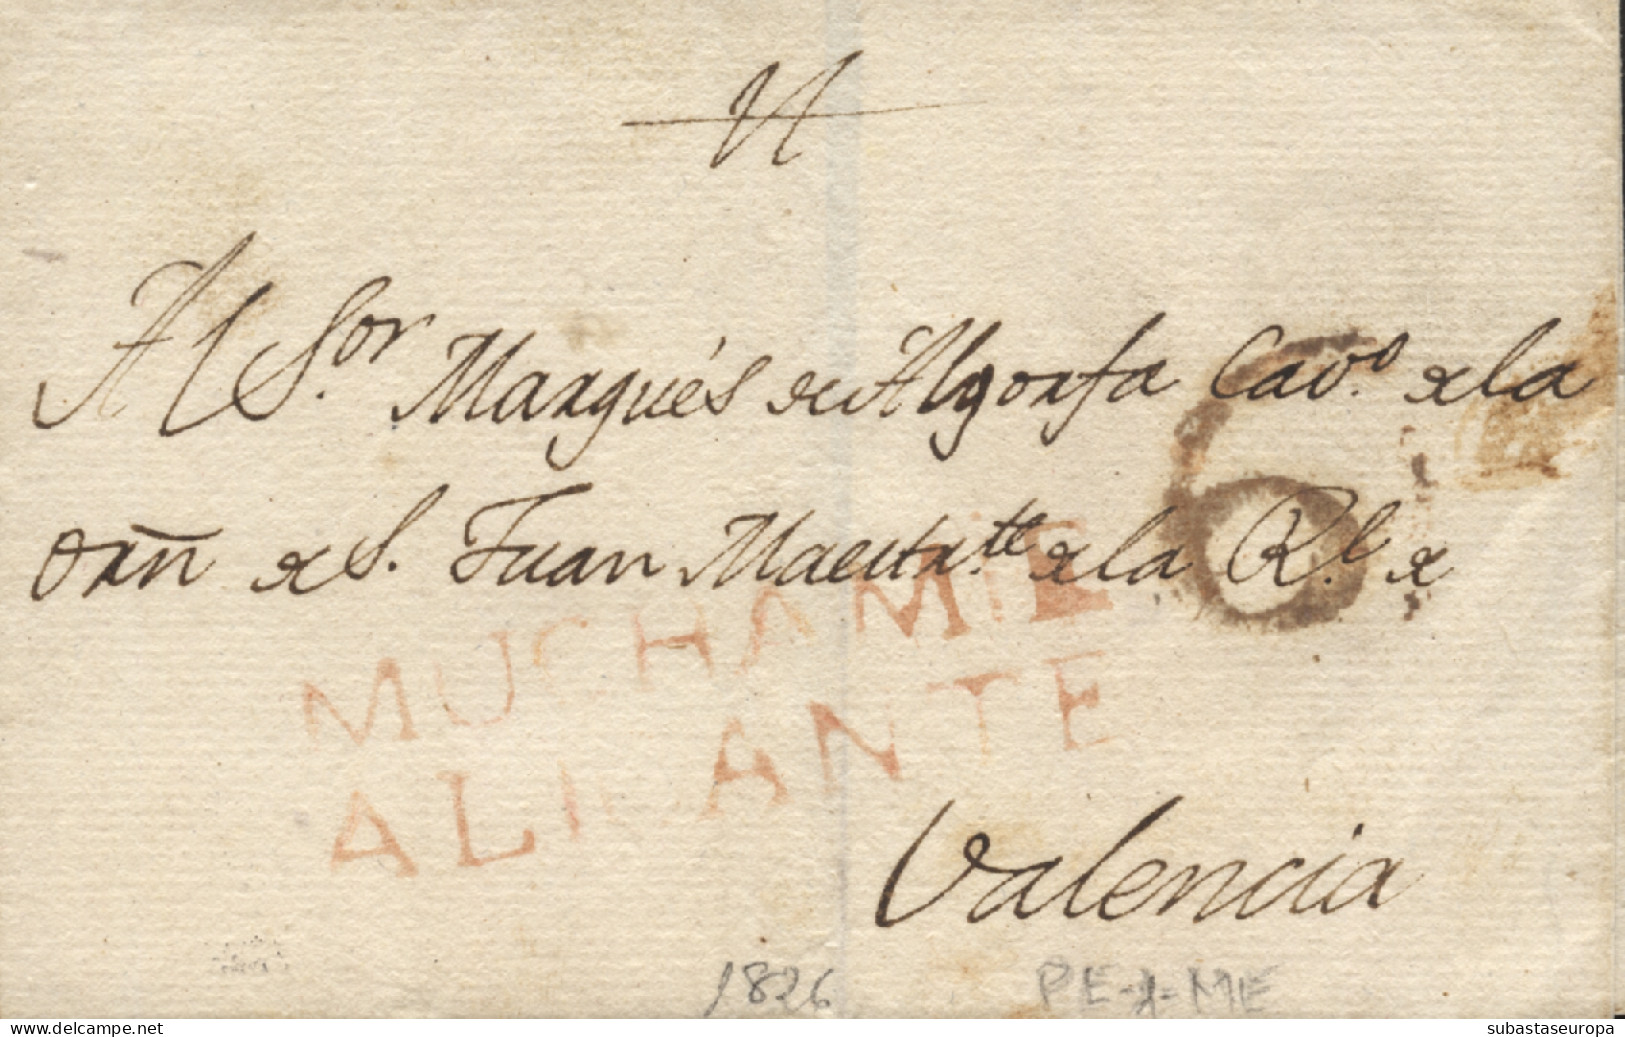 Al S.or Marqués de Algorfa Cav.o de la
Orñ de S. Juan Maestr.te de la R.l de
6
MUCHAMIEL
ALICANTE
Valencia
1826
PE-1-ME
www.delcampe.net
subastaseuropa